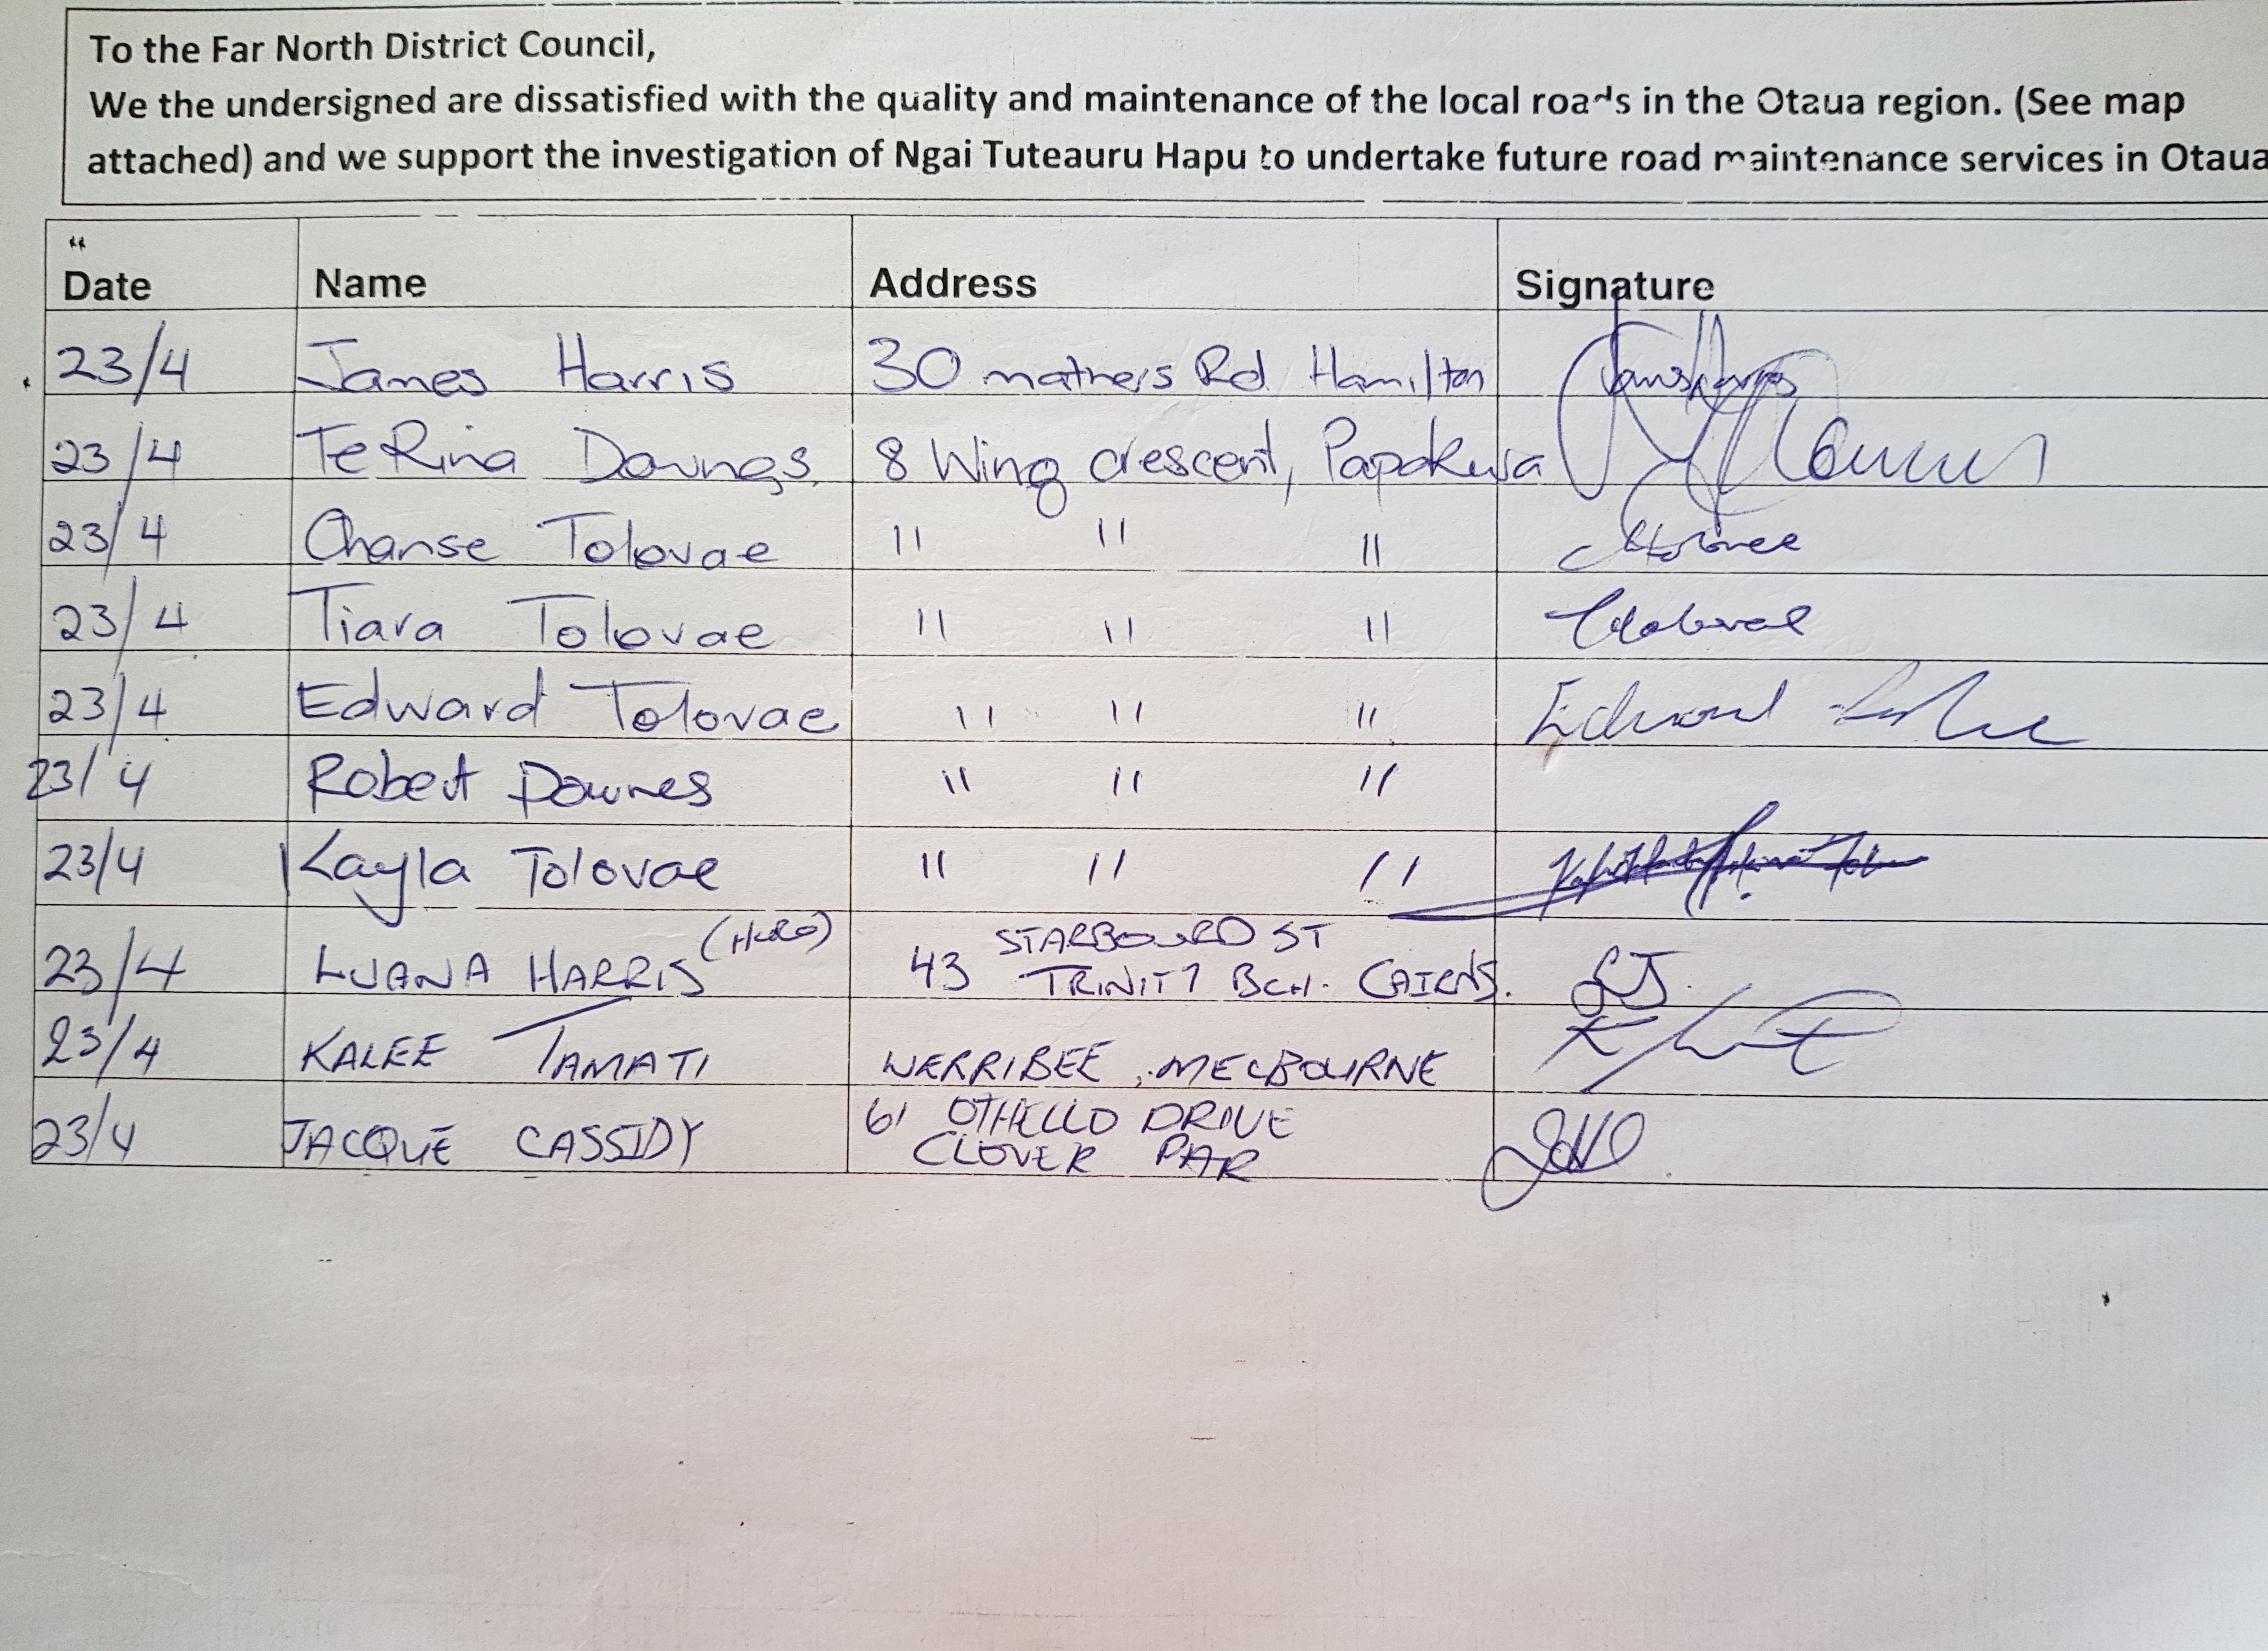 To the Far North District Council,
We the undersigned are dissatisfied with the quality and maintenance of the local roads in the Otaua region. (See map
attached) and we support the investigation of Ngai Tuteauru Hapu to undertake future road maintenance services in Otaua
Date Name Address Signature
23/4 James Harris 30 mathers Rd Hamilton
23/4 TeRina Downes 8 Wing crescent, Papakura
23/4 Chanse Tolovae " " "
23/4 Tiara Tolovae " " "
23/4 Edward Tolovae " " " Edward
23/4 Robert Downes " " "
23/4 Kayla Tolovae " " "
23/4 LUANA HARRIS 43 STARBOARD ST
TRINITY BCH. CAIRNS. LJ.
23/4 KALEE TAMATI WERRIBEE, MELBOURNE
23/4 JACQUE CASSIDY 61 OTHELLO DRIVE
CLOVER PAR